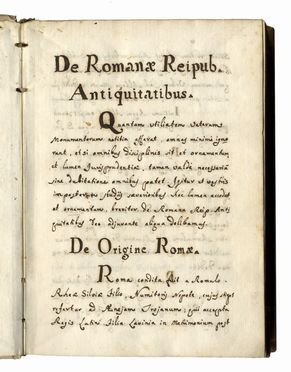 De Romanæ Reipub.
Antiquitatibus.
Quantam utilitatem Veterum
Monumentorum notitia afferat, omnes minimè igno
rant, et si omnibus disciplinis sit et ornamentum
et lumen Jurisprudentiæ, tamen valdè necessaria
sine dubitatione omnibus patet. Igitur ut vestris
impostorum studijs sauioribus hæc lumen accedat
et ornamentum, breviter de Romana Reip. Anti
quitatibus Deo adjuvante aliqua delibamus.
De Origine Romæ.
Roma condita fuit a Romulo
Rheæ Silviæ filio, Numitoris Nepote, cujus stirps
refertur ad Æneam Trojanum; qui accepta
Regis Latini filia Lavinia in Matrimonium post